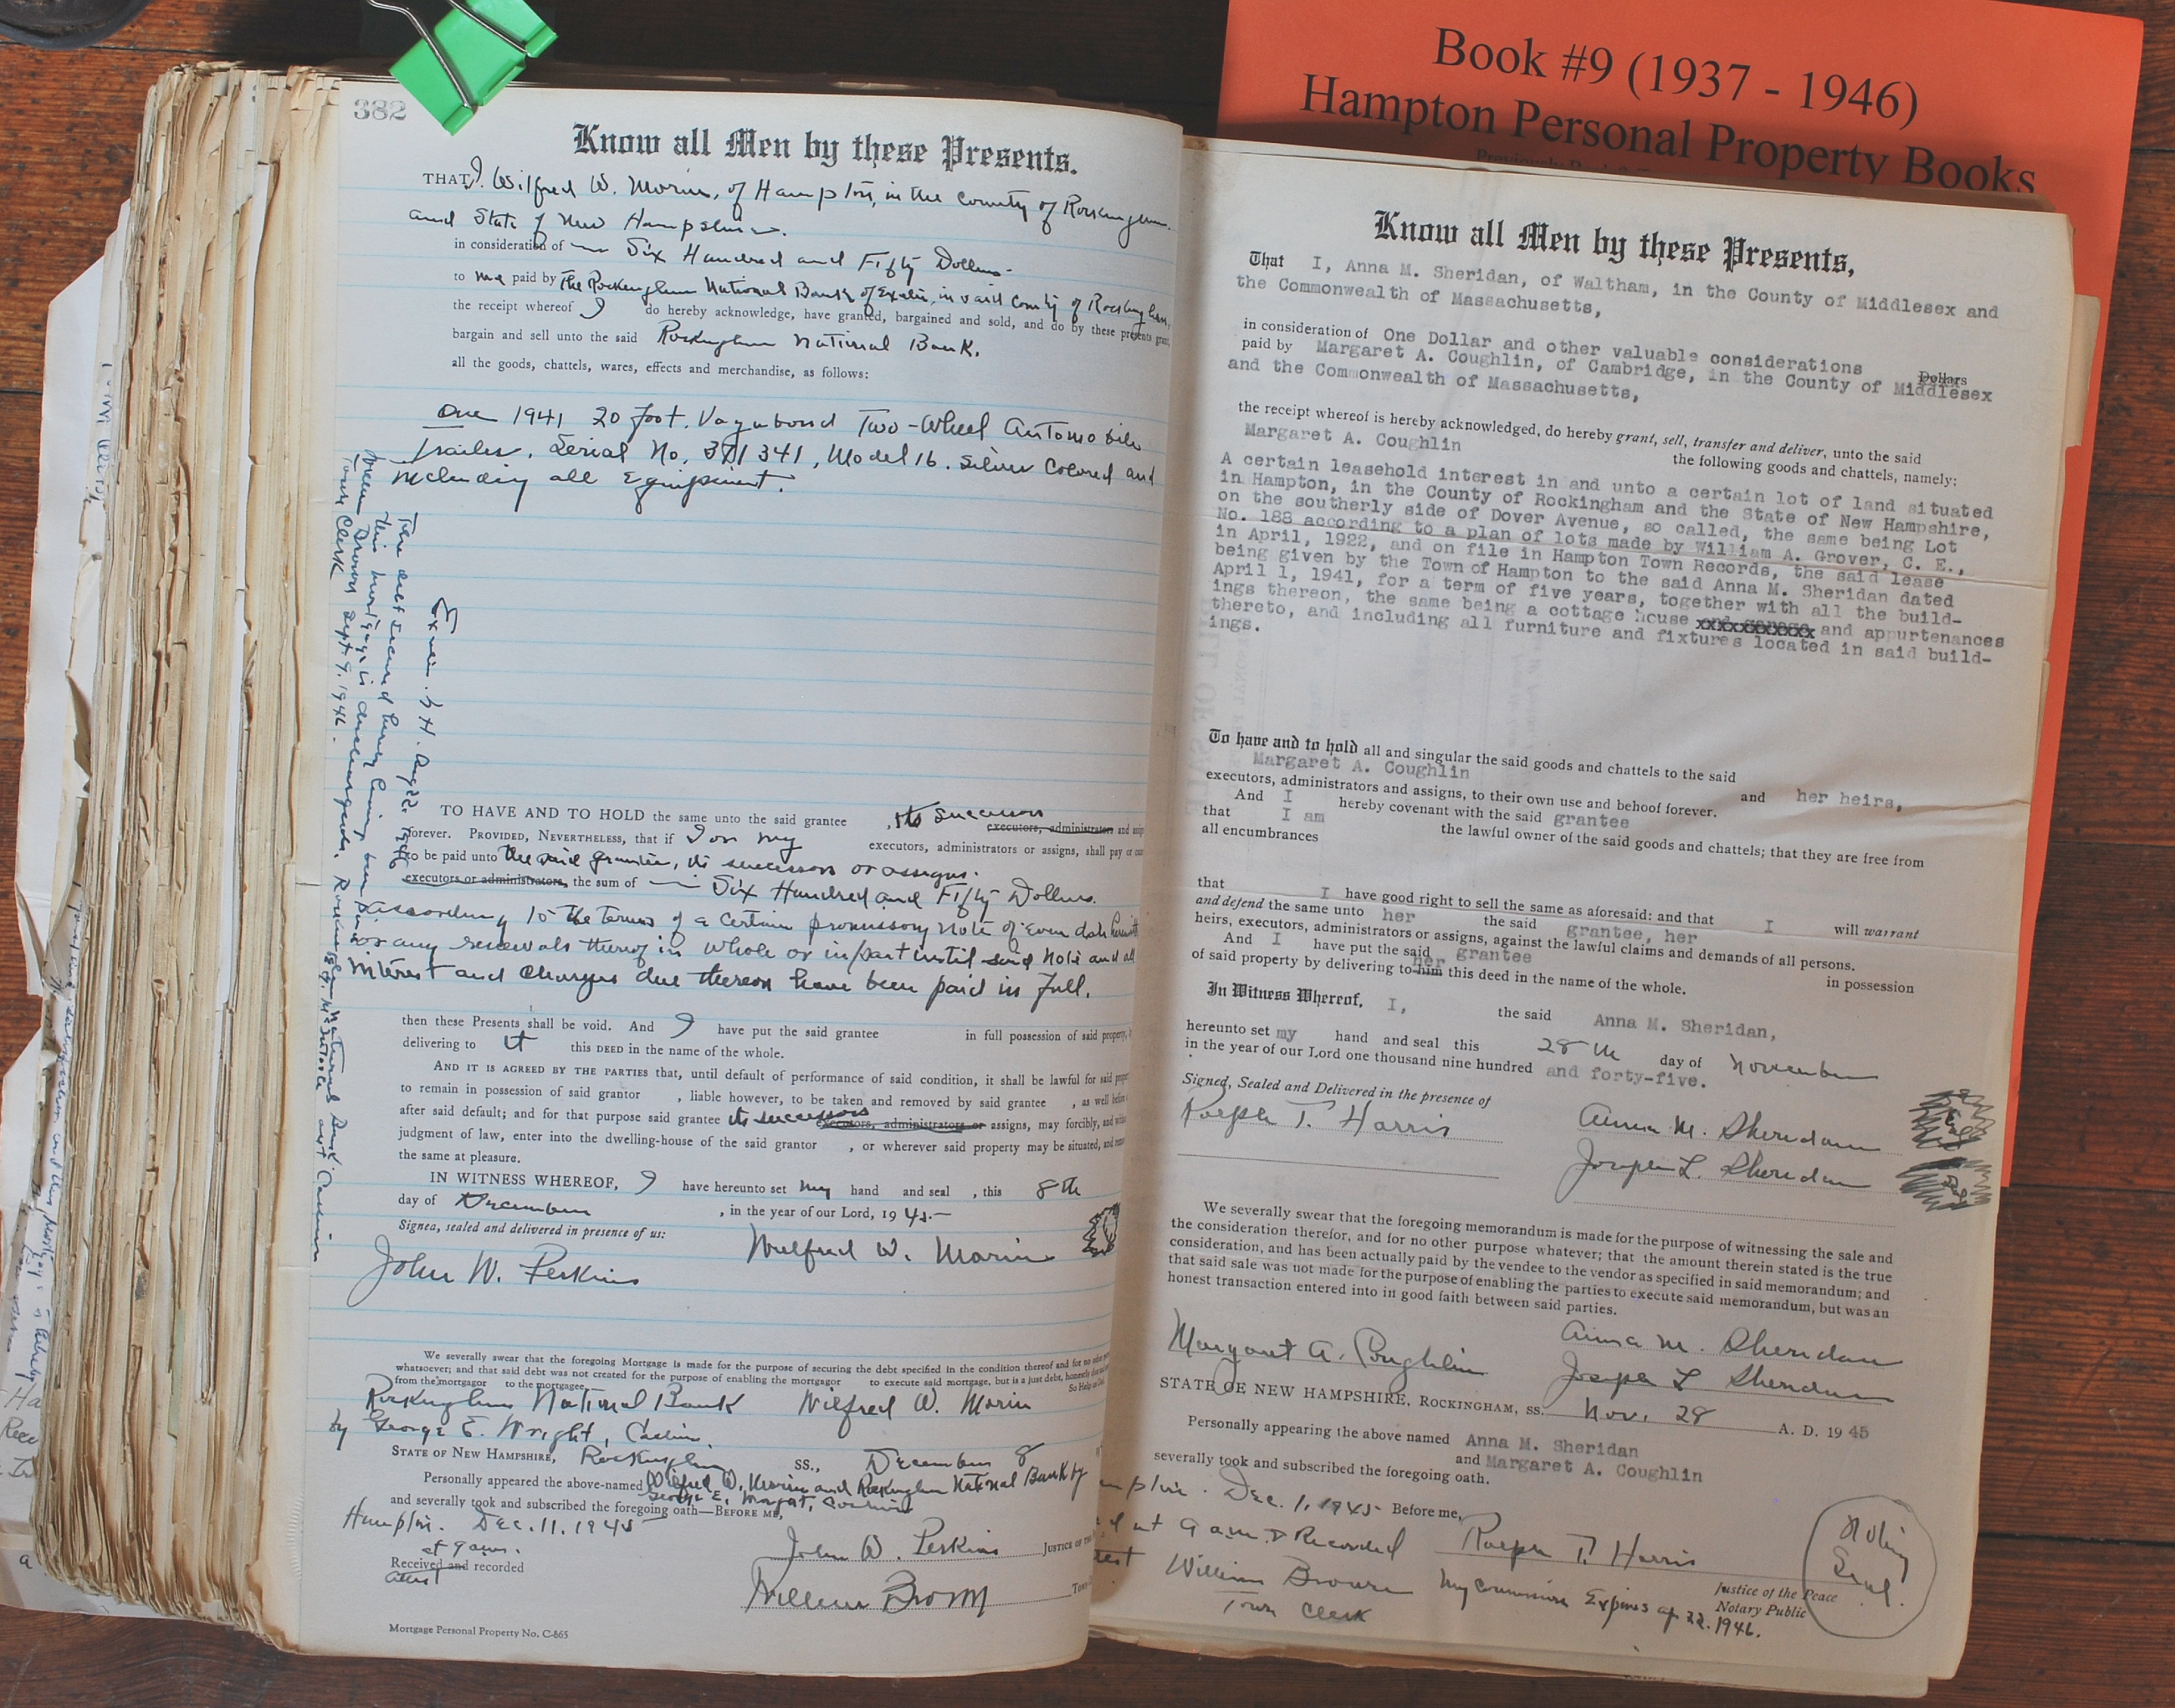 Book #9 (1937 - 1946)
Hampton Personal Property Books
382
Know all Men by these Presents.
THAT, I, Wilfred W. Morin, of Hampton, in the County of Rockingham
and State of New Hampshire.
in consideration of Six Hundred and Fifty Dollars.
to me paid by The Rockingham National Bank of Exeter, in said County of Rockingham,
the receipt whereof I do hereby acknowledge, have granted, bargained and sold, and do by these presents grant,
bargain and sell unto the said Rockingham National Bank.
all the goods, chattels, wares, effects and merchandise, as follows:
One 1941 20 foot. Vagabond Two-Wheel Automobile
Trailer, Serial No. 371341, Model 16. Silver Colored and
including all Equipment.
TO HAVE AND TO HOLD the same unto the said grantee , its successors executors, administrators and
forever. PROVIDED, NEVERTHELESS, that if I or my executors, administrators or assigns, shall pay or
to be paid unto the said grantee, its successors or assigns.
executors or administrators, the sum of Six Hundred and Fifty Dollars.
according to the terms of a certain promissory note of even date herewith
or any renewals thereof in whole or in part until said note and all
interest and charges due thereon have been paid in full.
then these Presents shall be void. And I have put the said grantee in full possession of said property,
delivering to it this DEED in the name of the whole.
AND IT IS AGREED BY THE PARTIES that, until default of performance of said condition, it shall be lawful for said
to remain in possession of said grantor , liable however, to be taken and removed by said grantee , as well before
after said default; and for that purpose said grantee its successors executors, administrators or assigns, may forcibly, and
judgment of law, enter into the dwelling-house of the said grantor , or wherever said property may be situated, and
the same at pleasure.
IN WITNESS WHEREOF, I have hereunto set my hand and seal , this 8th
day of December , in the year of our Lord, 1945.
Signed, sealed and delivered in presence of us:
Wilfred W. Morin
John W. Perkins
We severally swear that the foregoing Mortgage is made for the purpose of securing the debt specified in the condition thereof and for no other
whatsoever; and that said debt was not created for the purpose of enabling the mortgagor to execute said mortgage, but is a just debt, honestly
from the mortgagor to the mortgagee. So Help
Rockingham National Bank Wilfred W. Morin
by George E. Wright, Cashier.
STATE OF NEW HAMPSHIRE, Rockingham SS., December 8
Personally appeared the above-named Wilfred W. Morin and Rockingham National Bank by
George E. Wright, Cashier
and severally took and subscribed the foregoing oath—BEFORE ME,
Hampton. Dec. 11, 1945
at 9 am.
John W. Perkins JUSTICE OF THE
Received and recorded
attest
William Brown
Mortgage Personal Property No. C-865
Exeter. N.H. Aug 22, 1946
The debt secured hereby having been paid
this mortgage is discharged. Rockingham National Bank.
William Brown Sept 9, 1946.
Town Clerk
Know all Men by these Presents,
That I, Anna M. Sheridan, of Waltham, in the County of Middlesex and
the Commonwealth of Massachusetts,
in consideration of One Dollar and other valuable considerations Dollars
paid by Margaret A. Coughlin, of Cambridge, in the County of Middlesex
and the Commonwealth of Massachusetts,
the receipt whereof is hereby acknowledged, do hereby grant, sell, transfer and deliver, unto the said
Margaret A. Coughlin the following goods and chattels, namely:
A certain leasehold interest in and unto a certain lot of land situated
in Hampton, in the County of Rockingham and the State of New Hampshire,
on the southerly side of Dover Avenue, so called, the same being Lot
No. 188 according to a plan of lots made by William A. Grover, C. E.,
in April, 1922, and on file in Hampton Town Records, the said lease
being given by the Town of Hampton to the said Anna M. Sheridan dated
April 1, 1941, for a term of five years, together with all the build-
ings thereon, the same being a cottage house and appurtenances
thereto, and including all furniture and fixtures located in said build-
ings.
To have and to hold all and singular the said goods and chattels to the said
Margaret A. Coughlin and her heirs,
executors, administrators and assigns, to their own use and behoof forever.
And I hereby covenant with the said grantee
that I am the lawful owner of the said goods and chattels; that they are free from
all encumbrances
that I have good right to sell the same as aforesaid: and that I will warrant
and defend the same unto her the said grantee, her
heirs, executors, administrators or assigns, against the lawful claims and demands of all persons.
And I have put the said grantee in possession
of said property by delivering to him her this deed in the name of the whole.
In Witness Whereof, I, the said Anna M. Sheridan,
hereunto set my hand and seal this 28th day of November
in the year of our Lord one thousand nine hundred and forty-five.
Signed, Sealed and Delivered in the presence of
Ralph T. Harris Anna M. Sheridan Seal
Joseph L. Sheridan Seal
We severally swear that the foregoing memorandum is made for the purpose of witnessing the sale and
the consideration therefor, and for no other purpose whatever; that the amount therein stated is the true
consideration, and has been actually paid by the vendee to the vendor as specified in said memorandum; and
that said sale was not made for the purpose of enabling the parties to execute said memorandum, but was an
honest transaction entered into in good faith between said parties.
Margaret A. Coughlin Anna M. Sheridan
Joseph L Sheridan
STATE OF NEW HAMPSHIRE, ROCKINGHAM, SS. Nov. 28 A. D. 1945
Personally appearing the above named Anna M. Sheridan
and Margaret A. Coughlin
severally took and subscribed the foregoing oath.
Dec. 1, 1945 Before me,
at 9 am & Recorded Ralph T. Harris
William Brown
Town Clerk
Justice of the Peace
Notary Public
My Commission Expires Ap 22, 1946.
Notary
Seal.